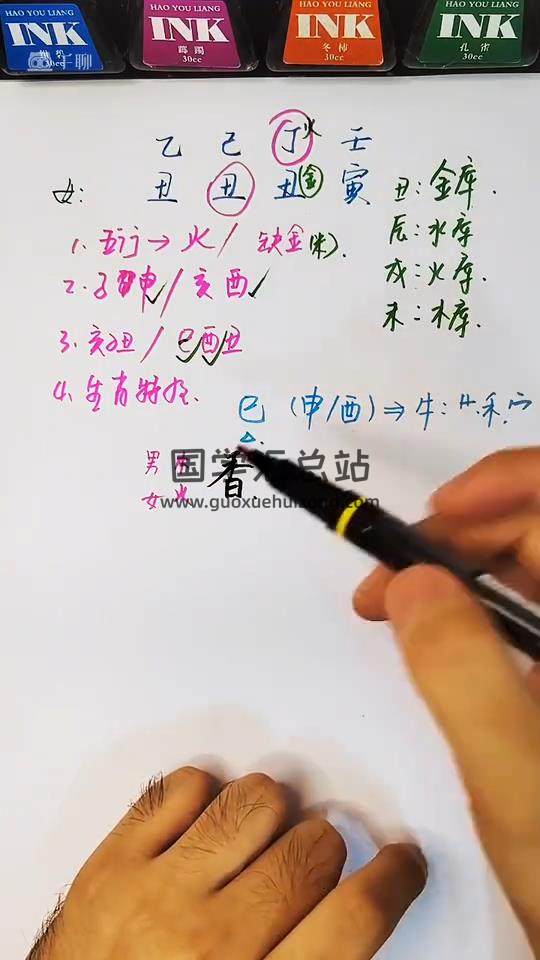 HAO YOU LIANG HAO YOU LIANG HAO YOU LIANG HAO YOU LIANG
INK INK INK INK
冬柿 孔雀
30cc 30cc 30cc 30cc
千聊
乙 己 丁火 壬
女: 丑 丑 丑金 寅
丑:金库.
辰:水库
戌:火库.
未:木库.
1. 五行→火/缺金
2. 子申/亥酉
3. 亥子丑/巳酉丑
4. 生肖特征
巳 (申/酉)⇒牛:艹.禾.宀
男
女火
香.
国学汇总站
www.guoxuehuizong.com